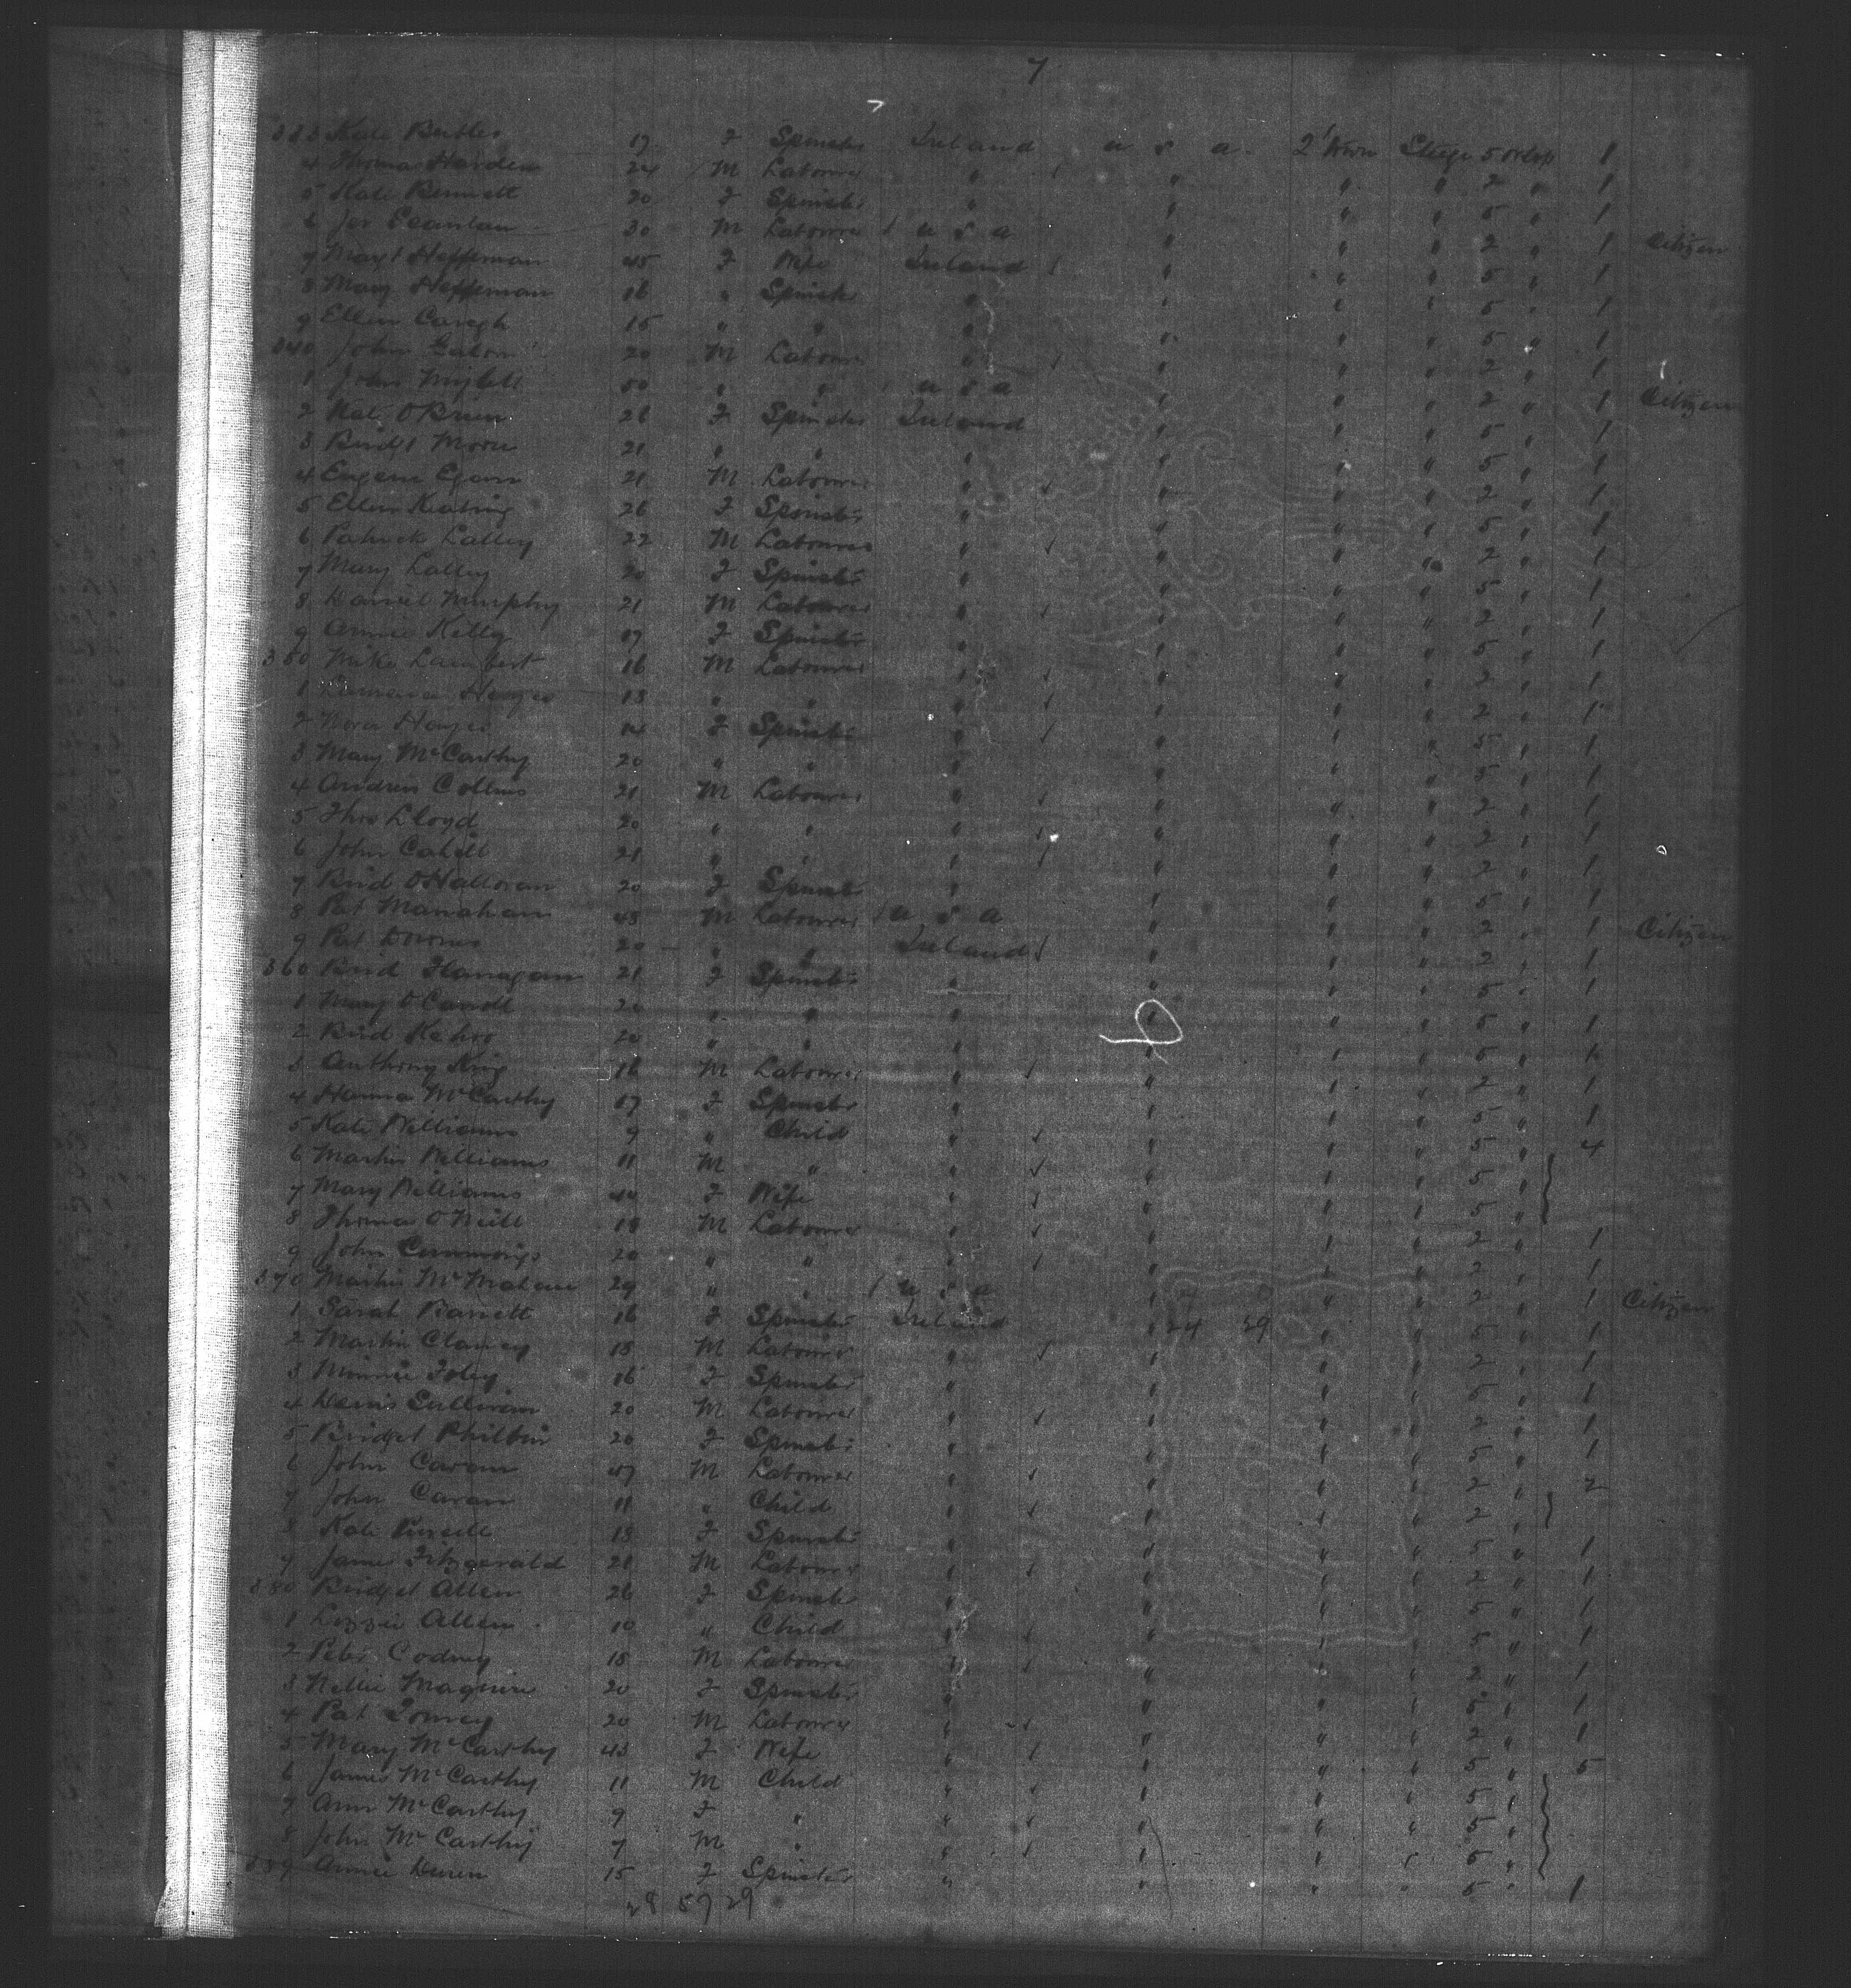 7
333 Kate Butler 17 F Spinster Ireland U S A 2 Town Steege 5 Orlop 1
4 Thomas Harden 24 M Labourer " " " " 2 " 1
5 Kate Bennett 20 F Spinster " " " " 5 " 1
6 Jer Scanlan 30 M Labourer U S A " " " 2 " 1 Citizen
7 Margt Heffernan 45 F Wife Ireland " " " 5 " 1
8 Mary Heffernan 16 " Spinster " " " " 5 " 1
9 Ellen 15 " " " " " " 5 " 1
340 John 20 M Labourer " " " " 2 " 1
1 John 50 " " U S A " " " 2 " 1 Citizen
2 Kate O'Brien 26 F Spinster Ireland " " " 5 " 1
3 Bridgt Moore 21 " " " " " " 5 " 1
4 Eugene Egan 21 M Labourer " " " " 2 " 1
5 Ellen Keating 26 F Spinster " " " " 5 " 1
6 Patrick Lalley 22 M Labourer " " " " 2 " 1
7 Mary Lalley 20 F Spinster " " " " 5 " 1
8 Daniel Murphy 21 M Labourer " " " " 2 " 1
9 Annie Kelly 17 F Spinster " " " " 5 " 1
350 Mike Lambert 16 M Labourer " " " " 2 " 1
1 Laurence 13 " " " " " " 2 " 1
2 Nora 14 F Spinster " " " " 5 " 1
3 Mary McCarthy 20 " " " " " " 5 " 1
4 Andrew Collins 21 M Labourer " " " " 2 " 1
5 Thos Lloyd 20 " " " " " " 2 " 1
6 John Cahill 21 " " " " " " 2 " 1
7 Brid O'Halloran 20 F Spinster " " " " 5 " 1
8 Pat Manahan 45 M Labourer U S A " " " 2 " 1 Citizen
9 Pat Downes 20 " " Ireland " " " 2 " 1
360 Brid Flanagan 21 F Spinster " " " " 5 " 1
1 Mary O'Carroll 20 " " " " " " 5 " 1
2 Brid Kehoe 20 " " " " " " 5 " 1
3 Anthony King 16 M Labourer " " " " 2 " 1
4 Hanna McCarthy 17 F Spinster " " " " 5 " 1
5 Kate Williams 9 " Child " " " " 5 " 4
6 Martin Williams 11 M " " " " " 5 "
7 Mary Williams 40 F Wife " " " " 5 "
8 Thomas O'Neill 18 M Labourer " " " " 2 " 1
9 John Cummings 20 " " " " " " 2 " 1
370 Martin McMahon 29 " " U S A " " " 2 " 1 Citizen
1 Sarah Barrett 16 F Spinster Ireland " 24 29 " " 5 " 1
2 Martin Clancy 18 M Labourer " " " " 2 " 1
3 Minnie Foley 16 F Spinster " " " " 5 " 1
4 Denis Sullivan 20 M Labourer " " " " 2 " 1
5 Bridget Philbin 20 F Spinster " " " " 5 " 1
6 John Cavan 47 M Labourer " " " " 2 " 2
7 John Cavan 11 " Child " " " " 2 "
8 Kate Pursell 18 F Spinster " " " " 5 " 1
9 James Fitzgerald 21 M Labourer " " " " 2 " 1
380 Bridget Allen 26 F Spinster " " " " 5 " 1
1 Lizzie Allen 10 " Child " " " " 5 " 1
2 Peter 18 M Labourer " " " " 2 " 1
3 Nellie Maguire 20 F Spinster " " " " 5 " 1
4 Pat 20 M Labourer " " " " 2 " 1
5 Mary McCarthy 43 F Wife " " " " 5 " 5
6 James McCarthy 11 M Child " " " " 5 "
7 Ann McCarthy 9 F " " " " " 5 "
8 John McCarthy 7 M " " " " " 5 "
389 Annie 15 F Spinster " " " " 5 " 1
28 57 29